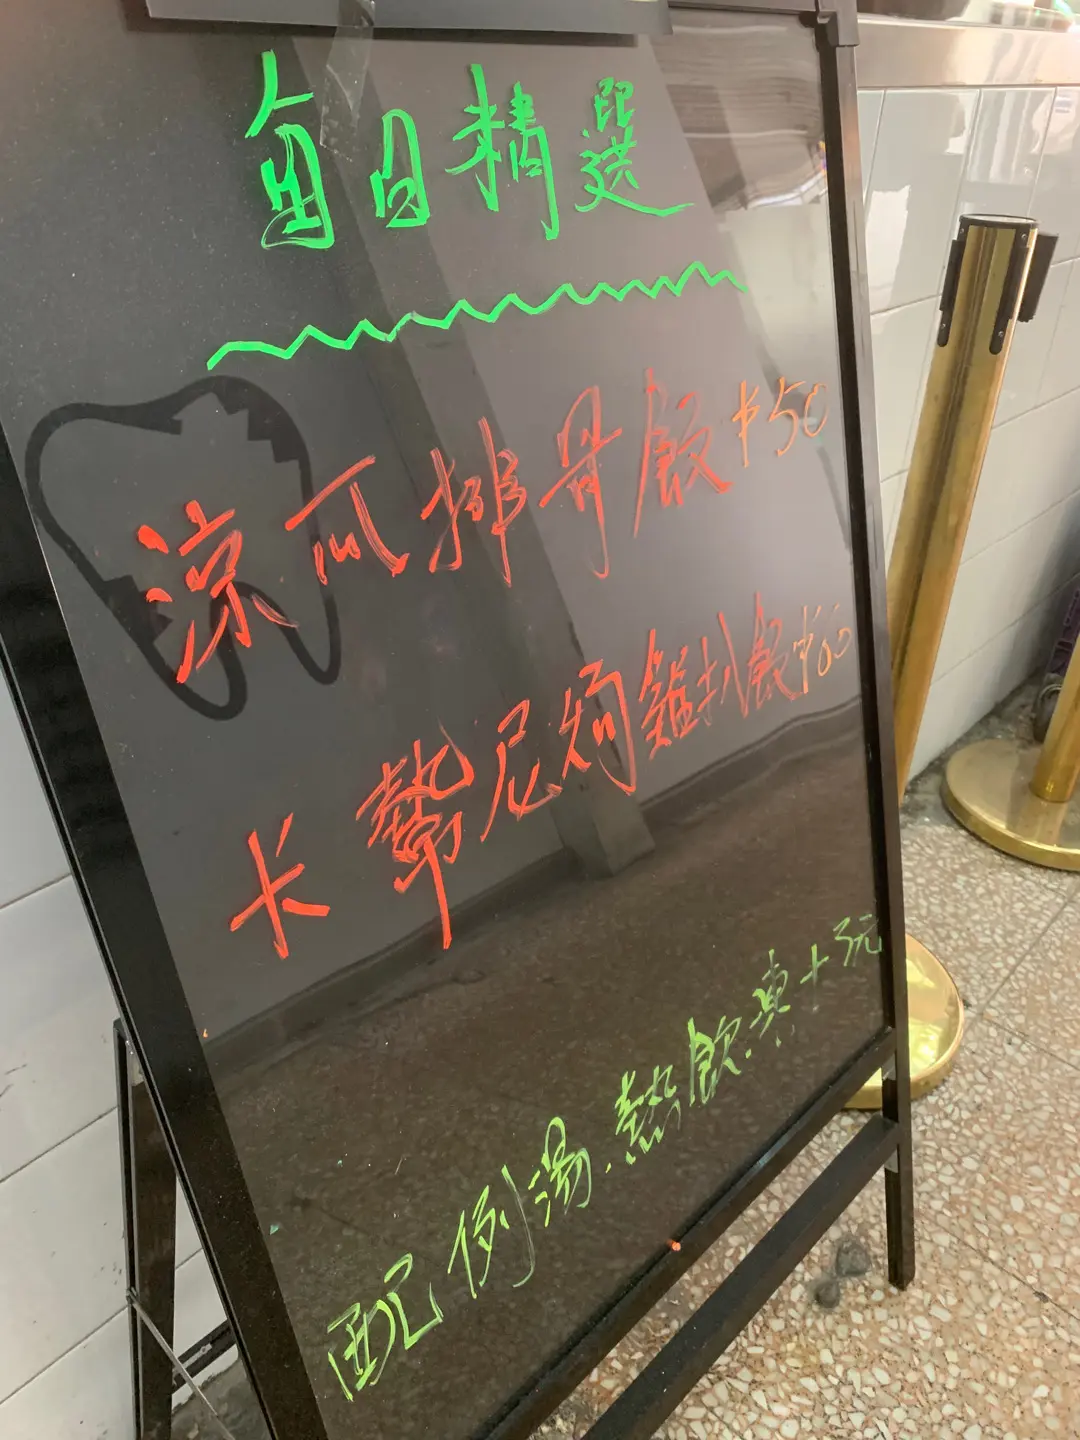 每日精選
涼瓜排骨飯 $50
卡幫尼焗雞扒飯 $60
配例湯.熱飲.凍+3元